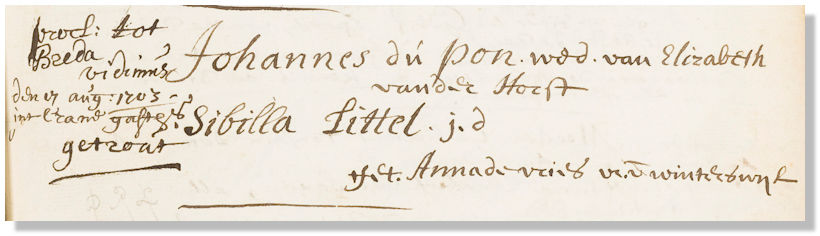 procl: tot
Breda
vidimus
den 17 aug: 1703
int Crane gasth:
getrout
Johannes dú pon. wed. van Elizabeth
vander Horst
Sibilla Littel. j. d
get. Anna de vries v. winterswyk